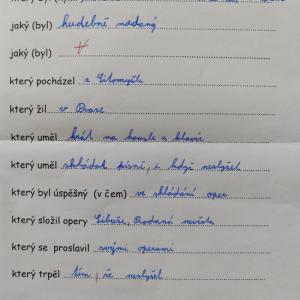 jaký (byl) hudebně nadaný
jaký (byl)
který pocházel z Litomyšle
který žil v Praze
který uměl hrát na housle a klavír
který uměl skládat písně, i když neslyšel
který byl úspěšný (v čem) ve skládání oper
který složil opery Libuše, Prodaná nevěsta
který se proslavil svými operami
který trpěl tím, že neslyšel